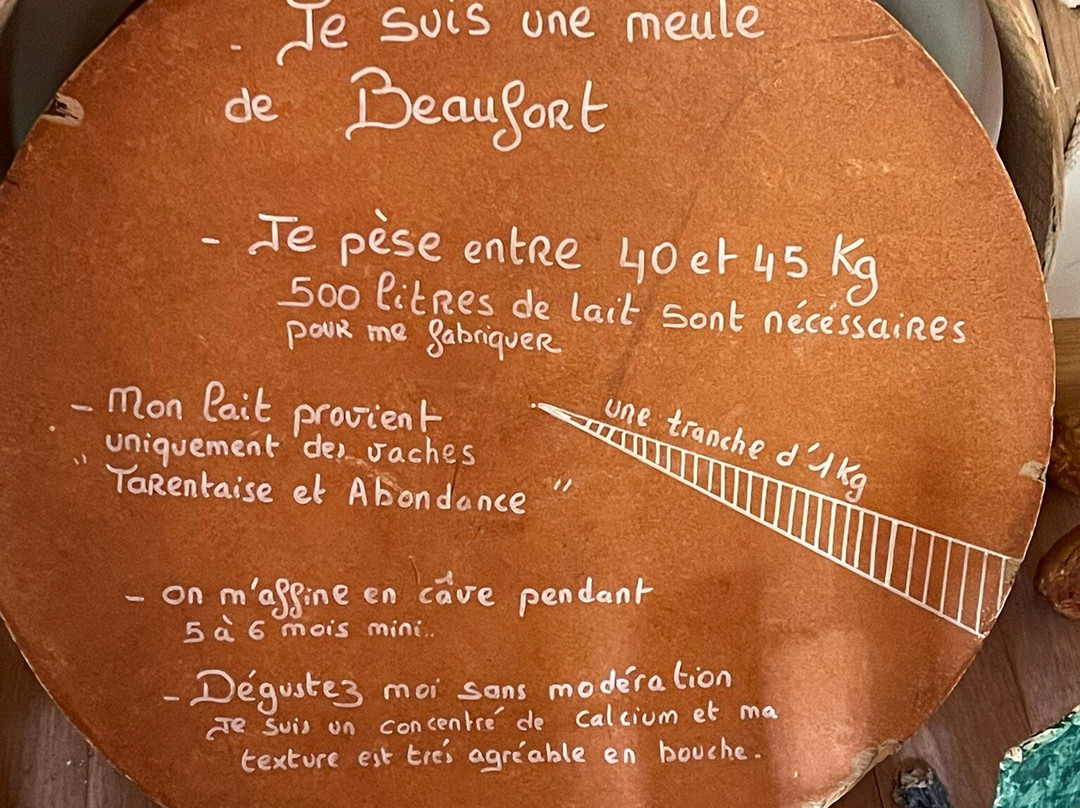 - Je suis une meule
de Beaufort
- Je pèse entre 40 et 45 Kg
500 litres de lait sont nécéssaires
pour me fabriquer
- Mon lait provient
uniquement des vaches
" Tarentaise et Abondance "
une tranche d'1Kg
- on m'affine en câve pendant
5 à 6 mois mini..
- Dégustez moi sans modération
Je suis un concentré de calcium et ma
texture est trés agréable en bouche.